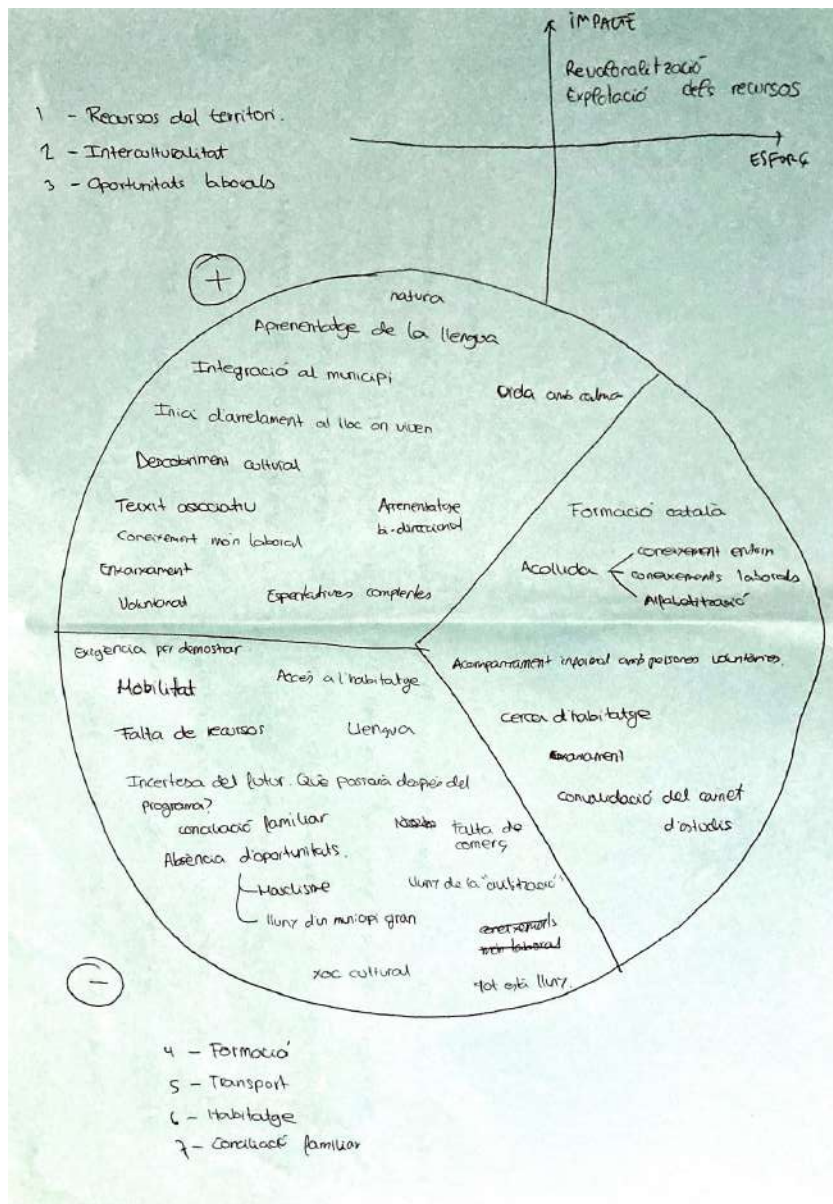 IMPACTE
Revaloralització
Explotació dels recursos
ESFORÇ
1 - Recursos del territori.
2 - Interculturalitat
3 - Oportunitats laborals
+
natura
Aprenentatge de la llengua
Integració al municipi
Vida amb calma
Inici d'arrelament al lloc on viuen
Descobriment cultural
Teixit associatiu
Aprenentatge
bi-direccional
Coneixement món laboral
Enxarxament
Voluntariat
Expectatives complertes
Formació català
Acollida
coneixement entorn
coneixements laborals
Alfabetització
Acompanyament informal amb persones voluntàries.
cerca d'habitatge
convalidació del carnet
d'estudis
Exigència per demostrar
Mobilitat
Accés a l'habitatge
Falta de recursos
Llengua
Incertesa del futur. Què passarà després del
programa?
conciliació familiar
falta de
comerç
Absència d'oportunitats.
Masclisme
lluny de la "civilització"
lluny d'un municipi gran
coneixements
món laboral
xoc cultural
tot està lluny.
-
4 - Formació
5 - Transport
6 - Habitatge
7 - Conciliació familiar